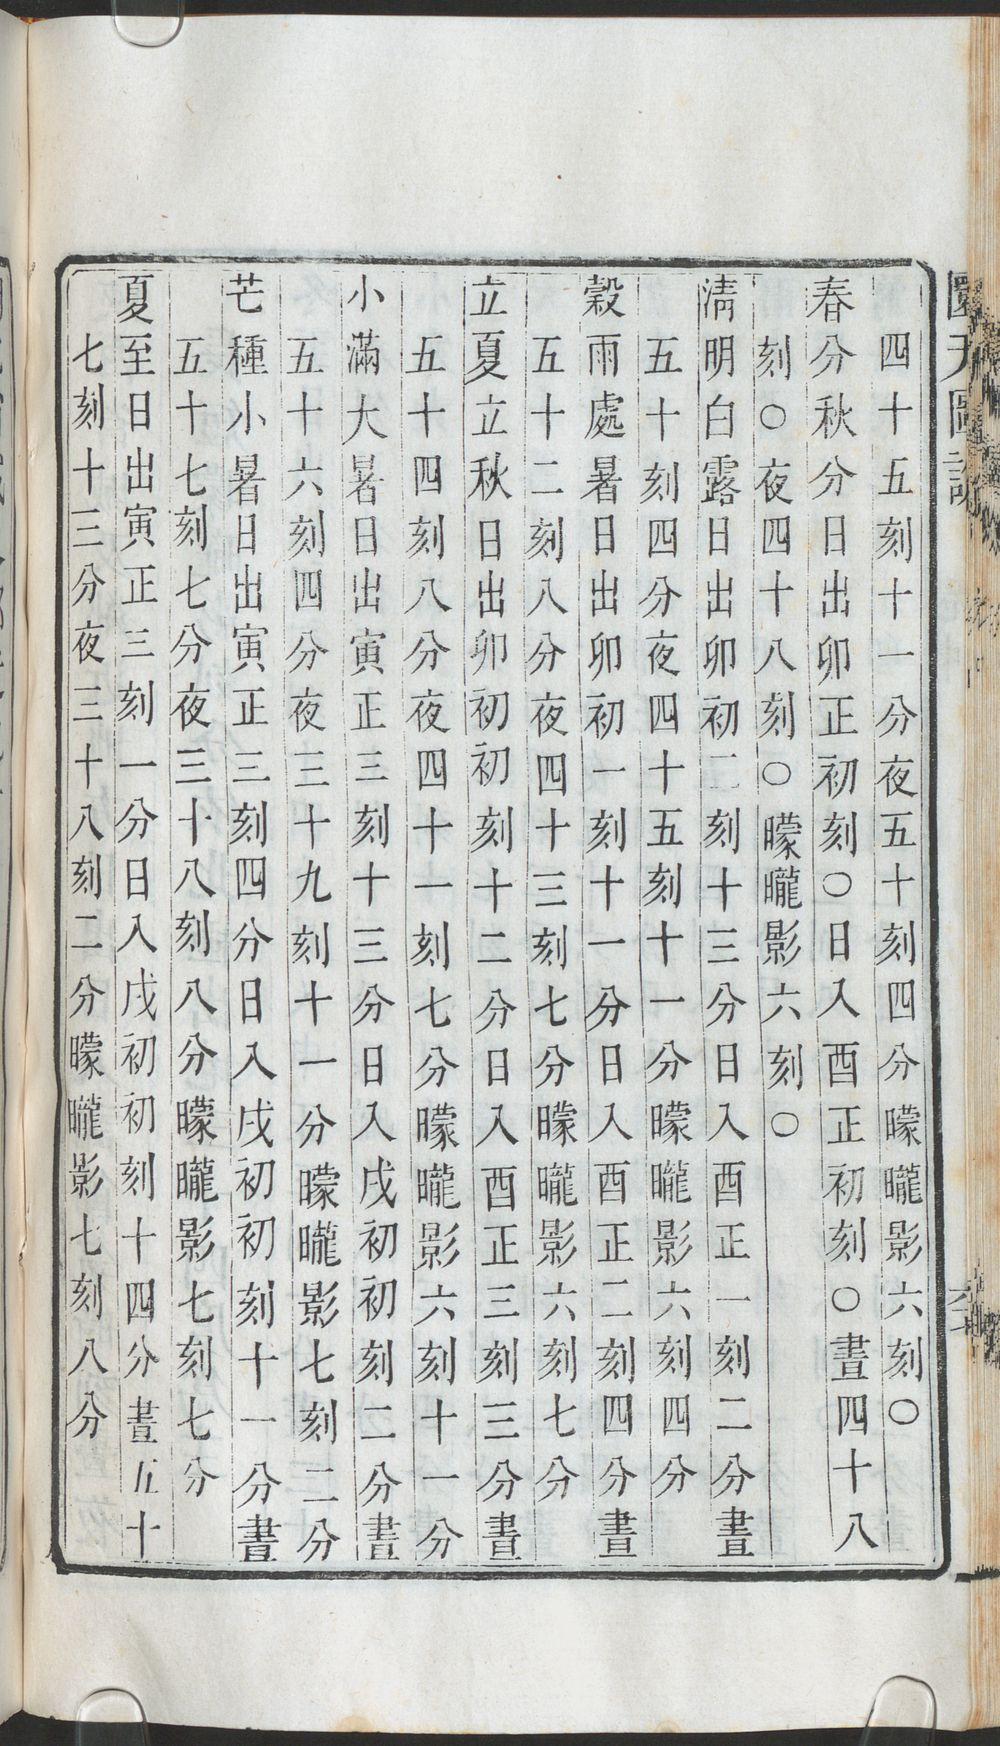 四十五刻十一分夜五十刻四分曚曨影六刻〇
春分秋分日出卯正初刻〇日入酉正初刻〇晝四十八
刻〇夜四十八刻〇曚曨影六刻〇
淸明白露日出卯初二刻十三分日入酉正一刻二分晝
五十刻四分夜四十五刻十一分曚曨影六刻四分
穀雨處暑日出卯初一刻十一分日入酉正二刻四分晝
五十二刻八分夜四十三刻七分曚曨影六刻七分
立夏立秋日出卯初初刻十二分日入酉正三刻三分晝
五十四刻八分夜四十一刻七分曚曨影六刻十一分
小滿大暑日出寅正三刻十三分日入戌初初刻二分晝
五十六刻四分夜三十九刻十一分曚曨影七刻二分
芒種小暑日出寅正三刻四分日入戌初初刻十一分晝
五十七刻七分夜三十八刻八分曚曨影七刻七分
夏至日出寅正三刻一分日入戌初初刻十四分晝五十
七刻十三分夜三十八刻二分曚曨影七刻八分